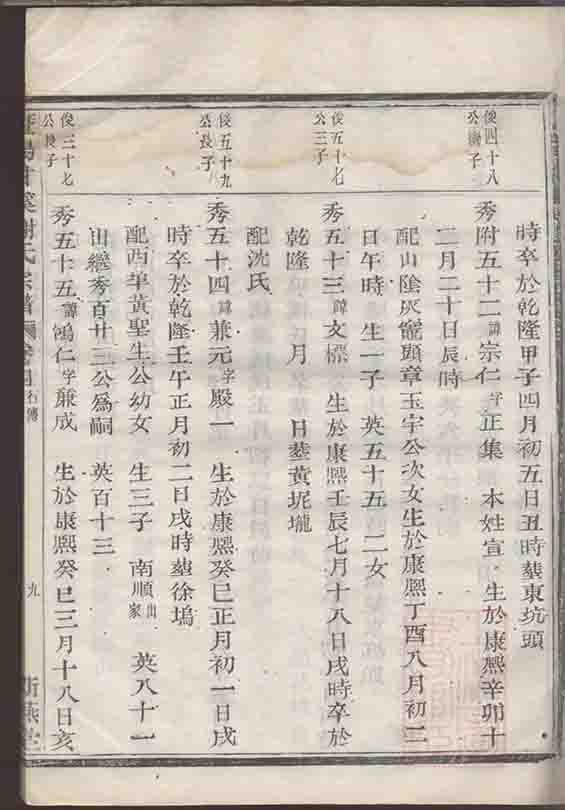 時卒於乾隆甲子四月初五日丑時塟東坑頭
俊四十八
公 子
秀附五十二諱宗仁字正集 本姓宣 生於康熙辛卯十
二月二十日辰時
配山陰灰竈頭章玉宇公次女生於康熙丁酉八月初二
日午時 生一子 英五十五 二女
俊五十七
公三子
秀五十三諱文標 生於康熙壬辰七月十八日戌時卒於
乾隆 月 日塟黄坭壠
配沈氏
俊五十九
公長子
秀五十四諱兼元字殿一 生於康熙癸巳正月初一日戌
時卒於乾隆壬午正月初二日戌時塟徐塢
配西莘黃聖生公幼女 生三子 南順出家 英八十一
出繼秀百廿三公爲嗣 英百十三
俊二十七
公長子
秀五十五諱鴻仁字蕆成 生於康熙癸巳三月十八日亥
謝氏宗譜 行傳 九